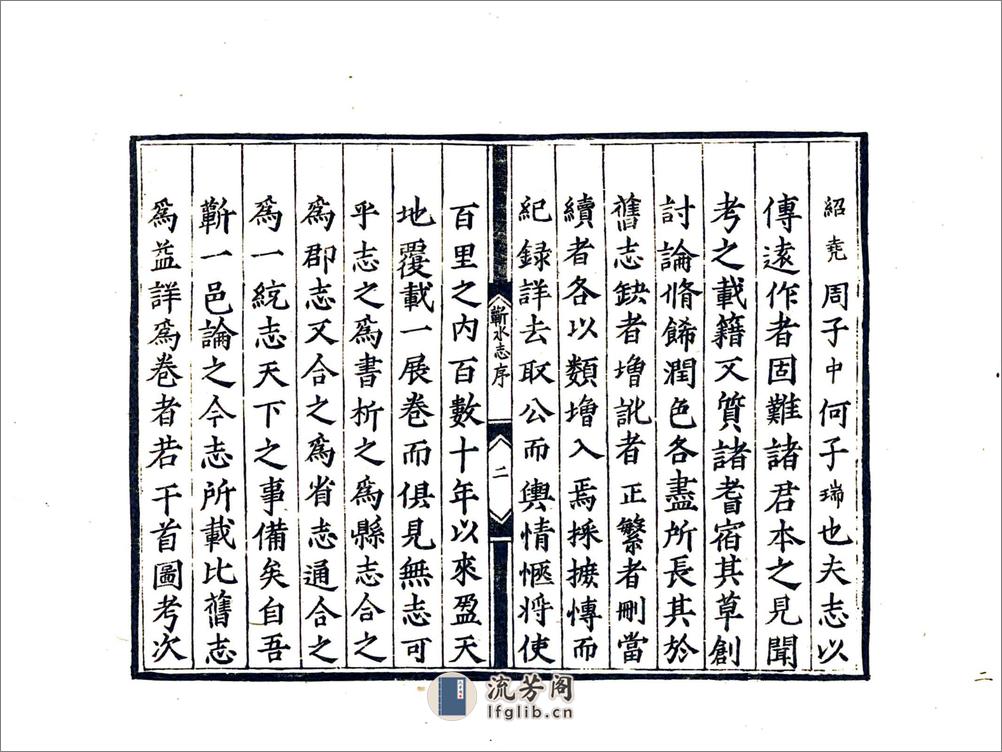 紹堯周子中何子瑞也夫志以
傳遠作者固難諸君本之見聞
考之載籍又質諸耆宿其草創
討論脩餙潤色各盡所長其於
舊志缺者增訛者正繁者刪當
續者各以類增入焉採摭慱而
紀録詳去取公而輿情愜将使
蘄水志序
二
百里之内百數十年以來盈天
地覆載一展卷而俱見無志可
乎志之爲書析之爲縣志合之
爲郡志又合之爲省志通合之
爲一統志天下之事備矣自吾
蘄一邑論之今志所載比舊志
爲益詳爲卷者若干首圖考次
二
流芳阁
lfglib.cn